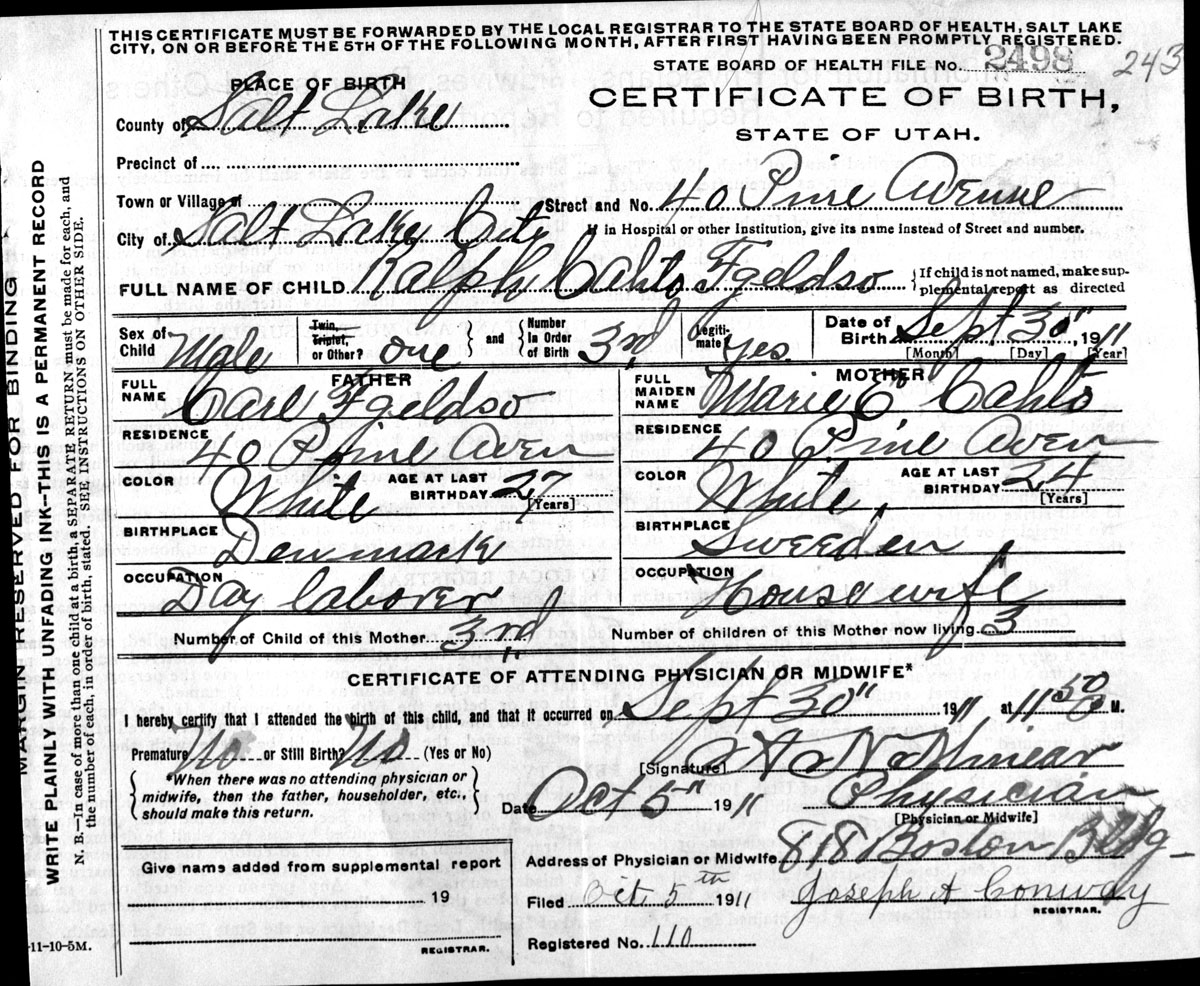 THIS CERTIFICATE MUST BE FORWARDED BY THE LOCAL REGISTRAR TO THE STATE BOARD OF HEALTH, SALT LAKE
CITY, ON OR BEFORE THE 5TH OF THE FOLLOWING MONTH, AFTER FIRST HAVING BEEN PROMPTLY REGISTERED.
STATE BOARD OF HEALTH FILE No. 2498 243
PLACE OF BIRTH
CERTIFICATE OF BIRTH,
STATE OF UTAH.
County of Salt Lake
Precinct of
Town or Village of
Street and No. 40 Pine Avenue
City of Salt Lake City
If in Hospital or other Institution, give its name instead of Street and number.
FULL NAME OF CHILD Ralph Cahto Fgeldso {If child is not named, make sup-
plemental report as directed
Sex of Child Male
Twin, Triplet, or Other? one } and { Number In Order of Birth 3rd
Legiti-mate? Yes
Date of Birth Sept 30", 1911
[Month] [Day] [Year]
FATHER
FULL NAME Carl Fgeldso
MOTHER
FULL MAIDEN NAME Marie E Cahto
RESIDENCE 40 Pine Aven
RESIDENCE 40 Pine Aven
COLOR White AGE AT LAST BIRTHDAY 27 [Years]
COLOR White AGE AT LAST BIRTHDAY 24 [Years]
BIRTHPLACE Denmark
BIRTHPLACE Sweeden
OCCUPATION Day laborer
OCCUPATION Housewife
Number of Child of this Mother 3rd
Number of children of this Mother now living 3
CERTIFICATE OF ATTENDING PHYSICIAN OR MIDWIFE*
I hereby certify that I attended the birth of this child, and that it occurred on Sept 30" 1911 at 11 M.
Premature No or Still Birth? No (Yes or No)
[Signature]
{*When there was no attending physician or
midwife, then the father, householder, etc.,
should make this return.}
Date Oct 5" 1911
Physician
[Physician or Midwife]
Address of Physician or Midwife 818 Boston Bldg
Give name added from supplemental report
19
REGISTRAR.
Filed Oct. 5th 1911 Joseph A Conway
REGISTRAR.
Registered No. 110
11-10-5M.
MARGIN RESERVED FOR BINDING
WRITE PLAINLY WITH UNFADING INK—THIS IS A PERMANENT RECORD
N. B.—In case of more than one child at a birth, a SEPARATE RETURN must be made for each, and
the number of each, in order of birth, stated. SEE INSTRUCTIONS ON OTHER SIDE.